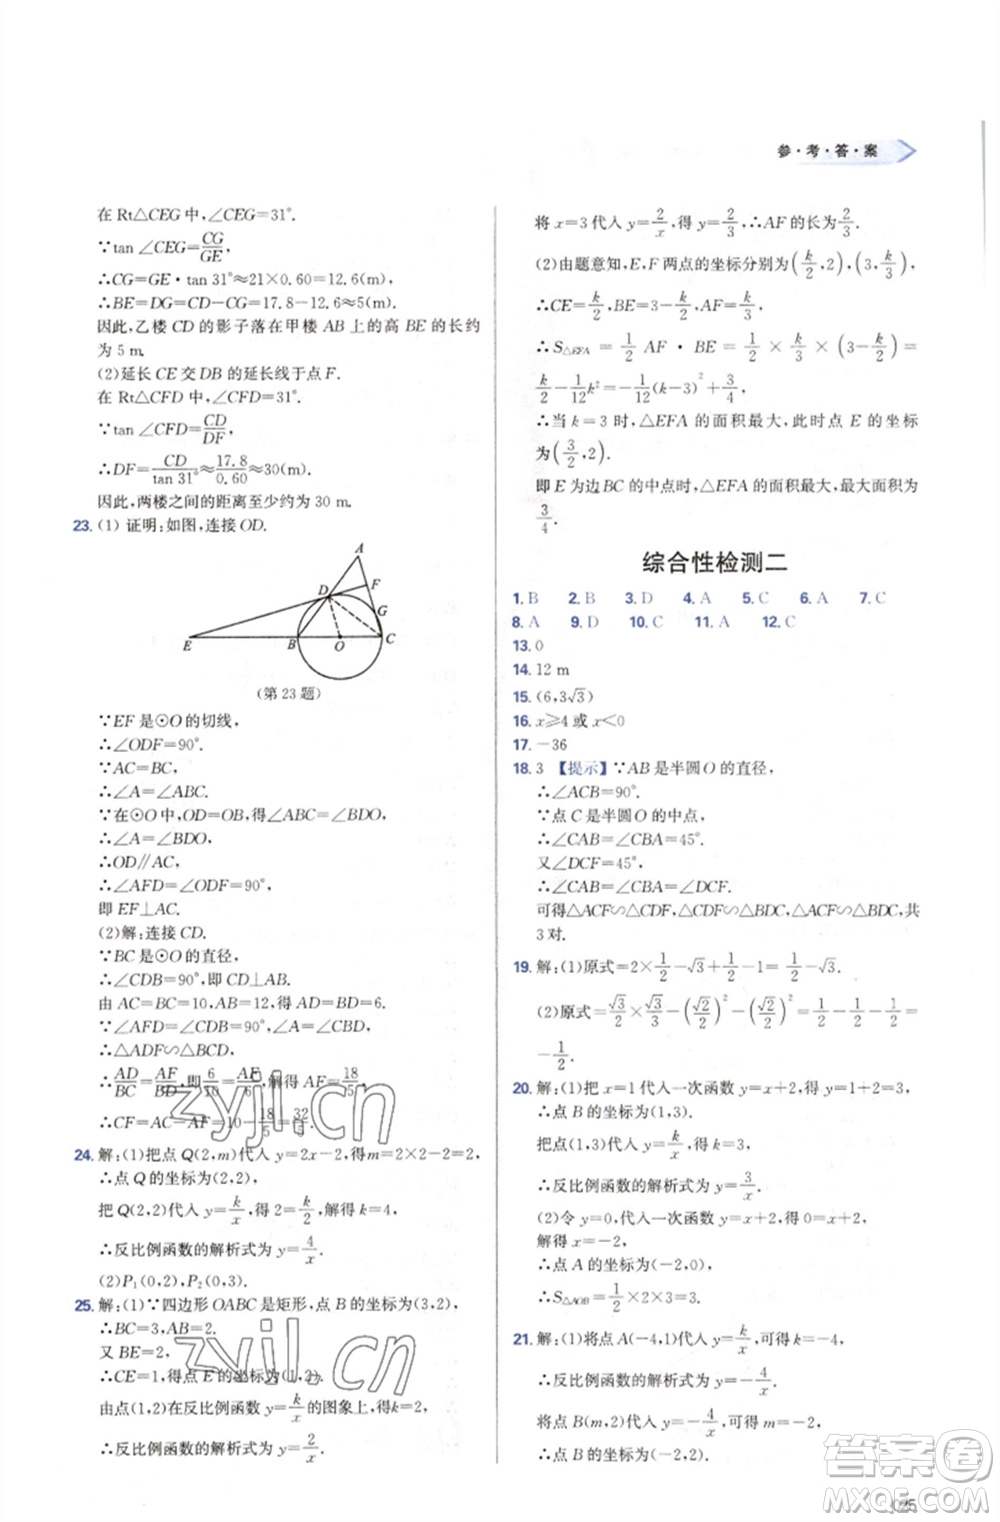 参·考·答·案
在 Rt△CEG 中,∠CEG=31°.
∵tan ∠CEG=CG/GE,
∴CG=GE·tan 31°≈21×0.60=12.6(m).
∴BE=DG=CD-CG=17.8-12.6=5(m).
因此,乙楼 CD 的影子落在甲楼 AB 上的高 BE 的长约
为 5 m.
(2)延长 CE 交 DB 的延长线于点 F.
在 Rt△CFD 中,∠CFD=31°.
∵tan ∠CFD=CD/DF,
∴DF=CD/tan 31°≈17.8/0.60≈30(m).
因此,两楼之间的距离至少约为 30 m.
23.(1) 证明:如图,连接 OD.
A
D
F
G
E
B
O
C
(第 23 题)
∵EF 是⊙O 的切线,
∴∠ODF=90°.
∵AC=BC,
∴∠A=∠ABC.
∵在⊙O 中,OD=OB,得∠ABC=∠ODB,
∴∠A=∠ODB,
∴OD∥AC,
∴∠AFD=∠ODF=90°,
即 EF⊥AC.
(2)解:连接 CD.
∵BC 是⊙O 的直径,
∴∠CDB=90°,即 CD⊥AB.
由 AC=BC=10,AB=12,得 AD=BD=6.
∵∠AFD=∠CDB=90°,∠A=∠CBD,
∴△ADF∽△BCD.
∴AD/BC=AF/BD,即 6/10=AF/6,解得 AF=18/5.
∴CF=AC-AF=10-18/5=32/5.
24. 解:(1)把点 Q(2,m)代入 y=2x-2,得m=2×2-2=2,
∴点 Q 的坐标为(2,2),
把 Q(2,2)代入 y=k/x,得 2=k/2,解得 k=4,
∴反比例函数的解析式为 y=4/x.
(2)P₁(0,2),P₂(0,-2).
25. 解:(1)∵四边形 OABC 是矩形,点 B 的坐标为(3,2),
∴BC=3,AB=2.
又 BE=2,
∴CE=1,得点 E 的坐标为(1,2).
由点(1,2)在反比例函数 y=k/x 的图象上,得k=2,
∴反比例函数的解析式为 y=2/x.
将 x=3 代入 y=2/x,得 y=2/3,∴AF 的长为 2/3.
(2)由题意知,E,F 两点的坐标分别为(k/2,2),(3,k/3),
∴CE=k/2,BE=3-k/2,AF=k/3.
∴S△EFA=1/2 AF·BE=1/2×k/3×(3-k/2)=
k/2-1/12k²=-1/12(k-3)²+3/4.
∴当 k=3 时,△EFA 的面积最大,此时点 E 的坐标
为(3/2,2).
即 E 为边 BC 的中点时,△EFA 的面积最大,最大面积为
3/4.
综合性检测二
1. B 2. B 3. D 4. A 5. C 6. A 7. C
8. A 9. D 10. C 11. A 12. C
13. 0
14. 12 m
15. (6,3√3)
16. x≥4 或 x<0
17. -36
18. 3 【提示】∵AB 是半圆 O 的直径,
∴∠ACB=90°.
∵点 C 是半圆 O 的中点,
∴∠CAB=∠CBA=45°.
又∠DCF=45°,
∴∠CAB=∠CBA=∠DCF.
可得△ACF∽△CDF∽△BDC,△ACF∽△BDC,共
3 对.
19. 解:(1)原式=2×1/2-√3+1/2×2-1=1-√3.
(2)原式=√3/2×√3/2-(√2/2)²-(√2/2)²=1/2-1/2-1/2=
-1/2.
20. 解:(1)把 x=1代入一次函数 y=x+2,得 y=1+2=3,
∴点 B 的坐标为(1,3).
把点(1,3)代入 y=k/x,得 k=3,
∴反比例函数的解析式为 y=3/x.
(2)令 y=0,代入一次函数 y=x+2,得 0=x+2,
解得 x=-2.
∴点 A 的坐标为(-2,0),
∴S△AOB=1/2×2×3=3.
21. 解:(1)将点 A(-4,1)代入 y=k/x,可得 k=-4,
∴反比例函数的解析式为 y=-4/x.
将点 B(m,2)代入 y=-4/x,可得 m=-2,
∴点 B 的坐标为(-2,2).
025
zyjl.cn
zyjl.cn
答案卷
MXQE.COM